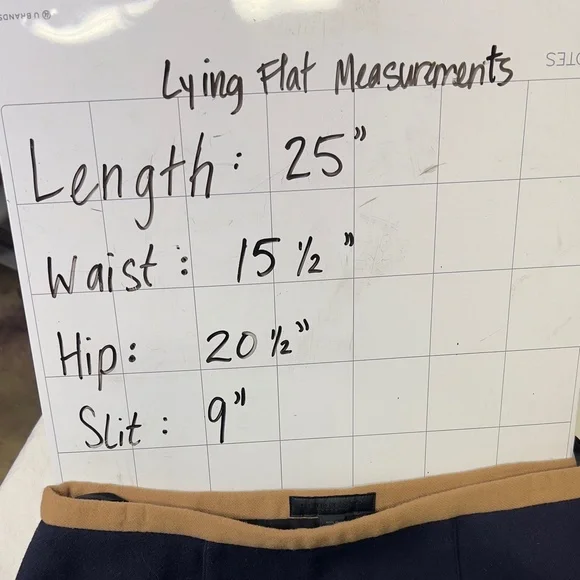 U BRANDS
Lying Flat Measurments
Length: 25"
Waist: 15 1/2"
Hip: 20 1/2"
Slit: 9"